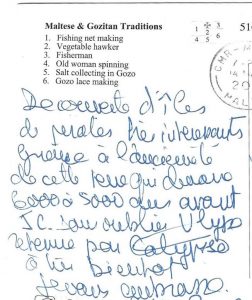 Maltese & Gozitan Traditions
1. Fishing net making
2. Vegetable hawker
3. Fisherman
4. Old woman spinning
5. Salt collecting in Gozo
6. Gozo lace making
1 2 3
4 5 6
51
CMR
MAL
Découverte d'îles
de pirates très intéressants
grâce à l'ancienneté
de cette terre qui
6000 à 5000 ans avant
J.C. sans oublier Ulysse
retenu par Calypso
à très bientôt
Je vous embrasse